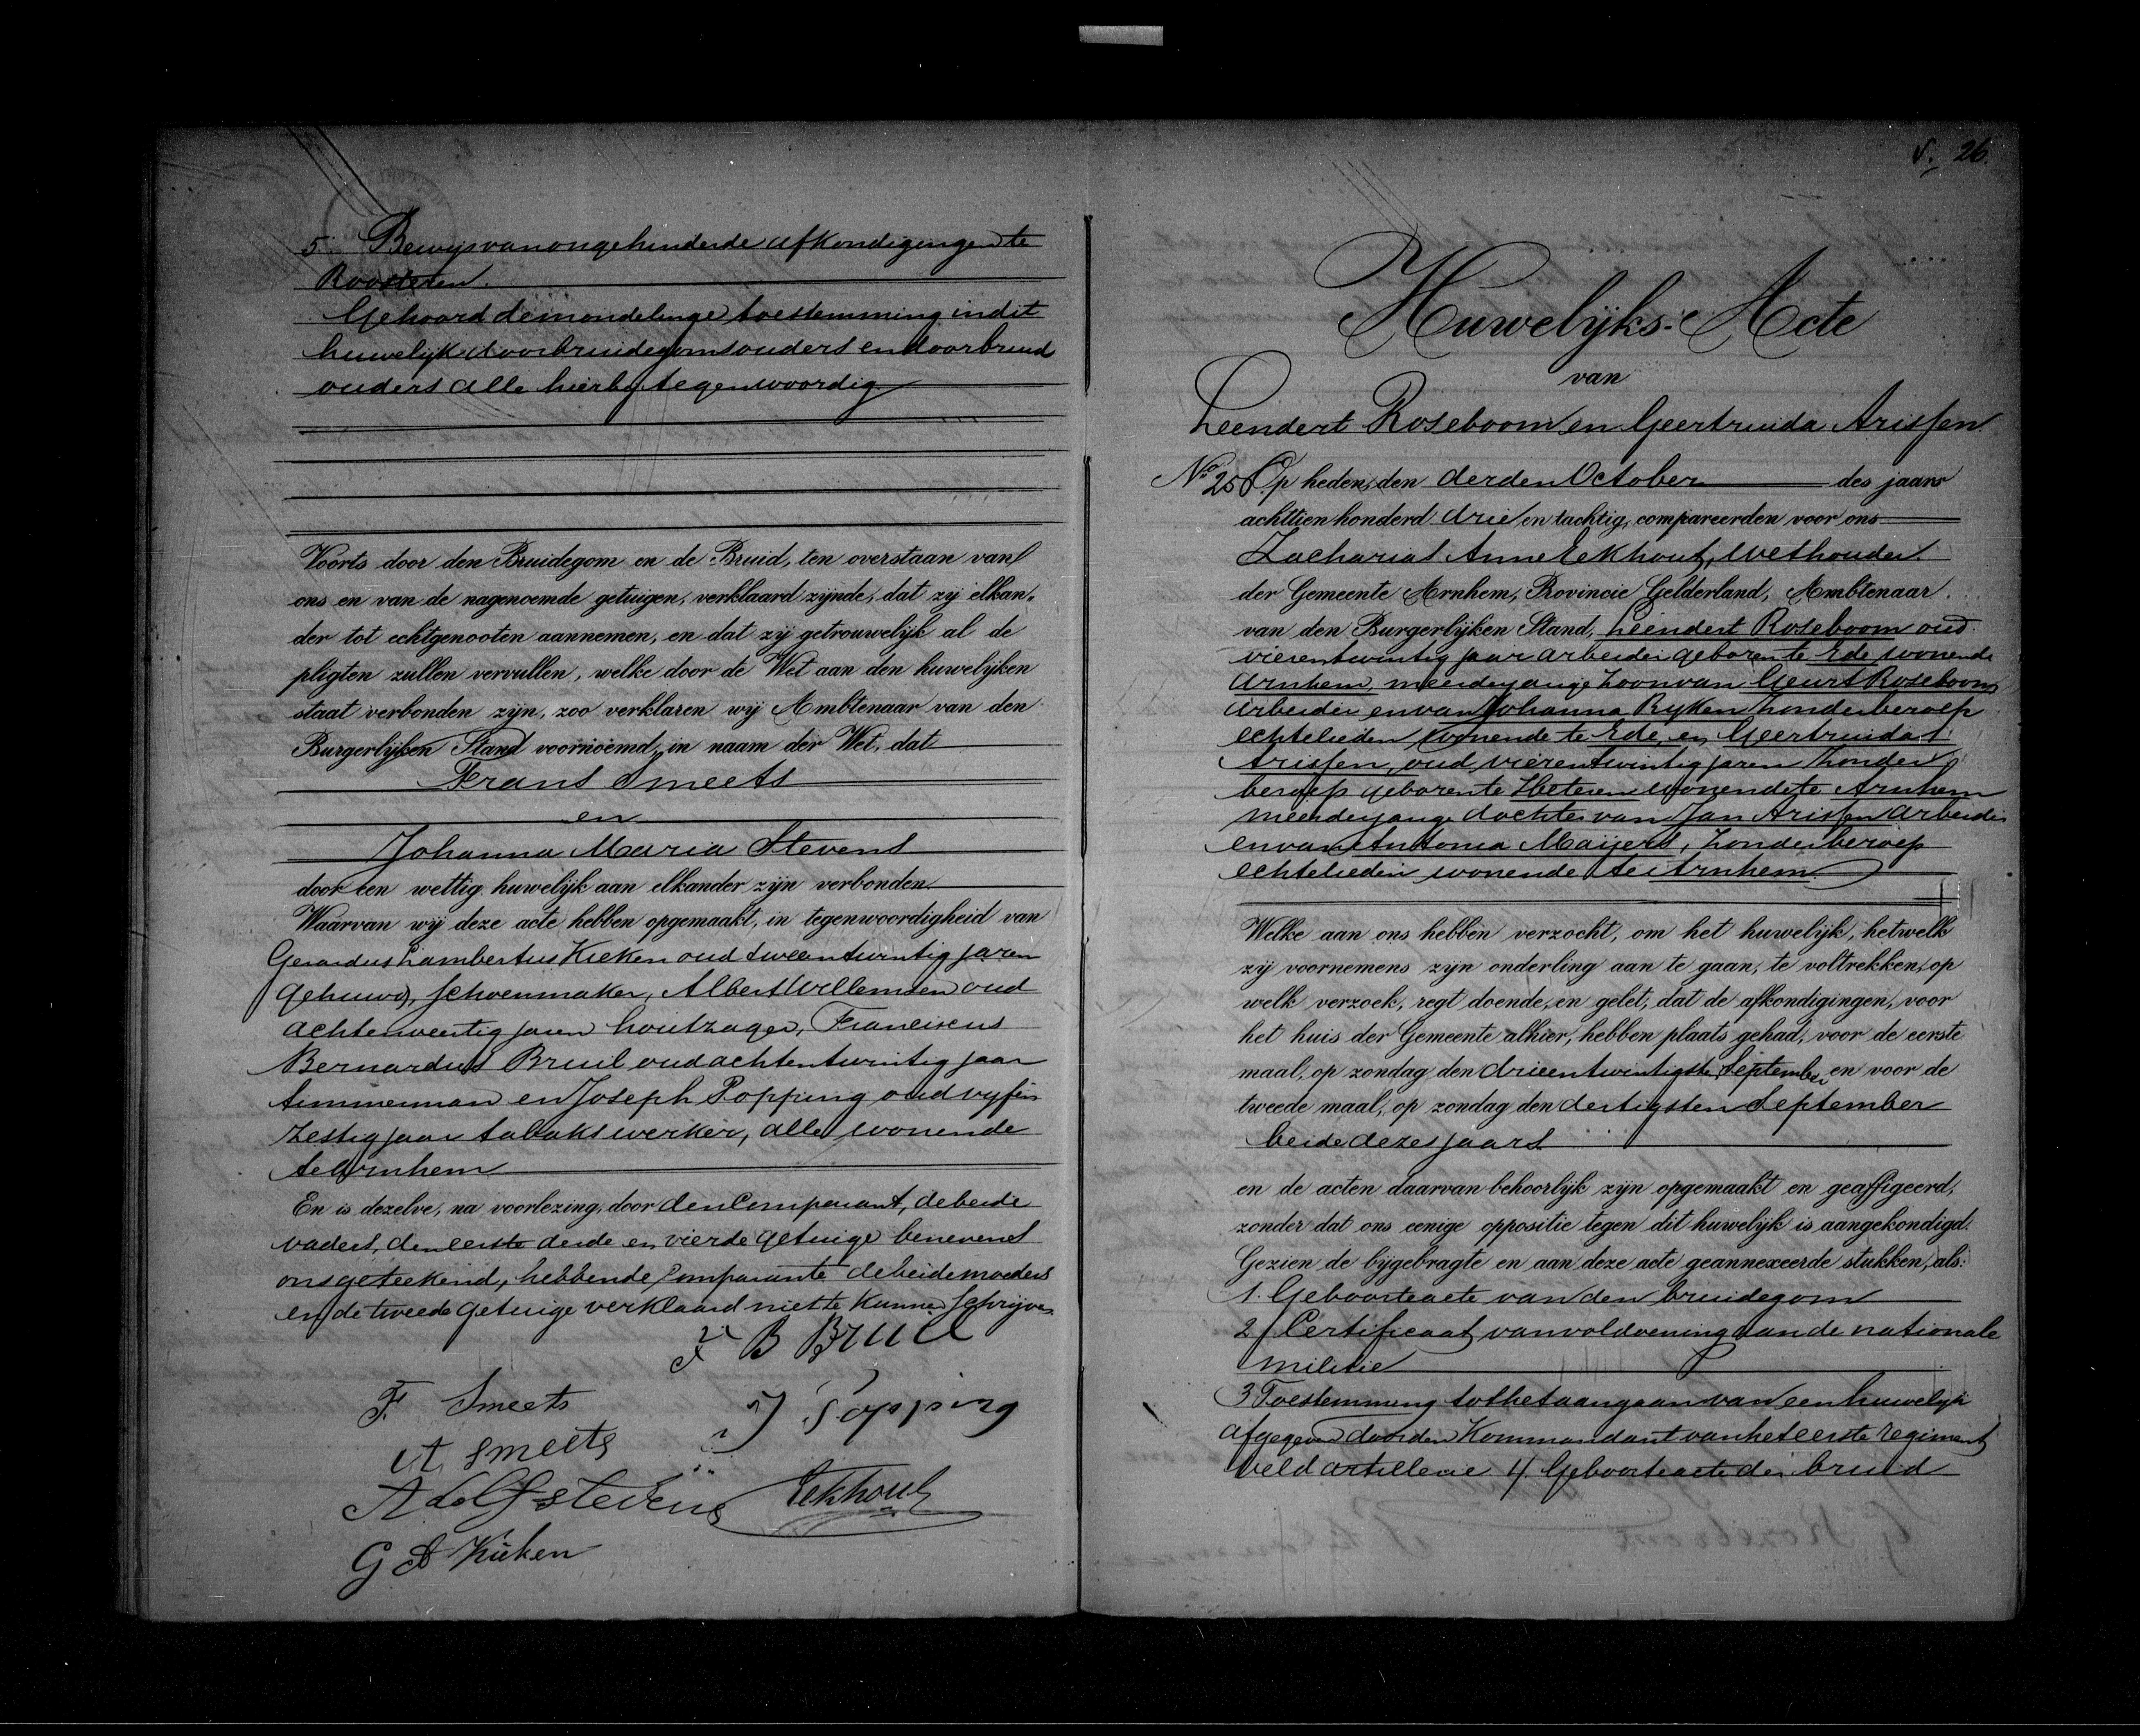 5. Bewijs van ongehinderde afkondigingen te
Roosteren.
Gehoord de mondelinge toestemming in dit
huwelijk door bruidegoms ouders en door bruids
ouders alle hierbij tegenwoordig
Voorts door den Bruidegom en de Bruid, ten overstaan van
ons en van de nagenoemde getuigen, verklaard zijnde, dat zij elkan-
der tot echtgenooten aannemen, en dat zij getrouwelijk al de
pligten zullen vervullen, welke door de Wet aan den huwelijken
staat verbonden zijn, zoo verklaren wij Ambtenaar van den
Burgerlijken Stand voornoemd, in naam der Wet, dat
Frans Smeets
en
Johanna Maria Stevens
door een wettig huwelijk aan elkander zijn verbonden.
Waarvan wij deze acte hebben opgemaakt, in tegenwoordigheid van
Gerardus Lambertus Kieken oud tweeentwintig jaren
gehuwd, schoenmaker, Albert Willemsen oud
achtenveertig jaren houtzager, Franciscus
Bernardus Bruil oud achtentwintig jaar
timmerman en Joseph Popping oud vijfen
zestig jaar tabakswerker, alle wonende
te Arnhem
En is dezelve, na voorlezing, door den Comparant, de beide
vaders, den eerste derde en vierde getuige benevens
ons geteekend, hebbende Comparante de beide moeders
en de tweede getuige verklaard niet te kunnen schrijven
F B Bruil
F. Smeets
J Popping
A Smeets
Adolf Stevens
Eekhout
G L Kieken
V. 26.
Huwelijks-Acte
van
Leendert Roseboom en Geertruida Arissen
No. 256 Op heden, den derden October des jaars
achttien honderd drie en tachtig, compareerden voor ons
Zacharias Anne Eekhout, wethouder
der Gemeente Arnhem, Provincie Gelderland, Ambtenaar
van den Burgerlijken Stand, Leendert Roseboom oud
vierentwintig jaar arbeider geboren te Ede wonende
Arnhem, meerderjarige zoon van Geurt Roseboom
arbeider en van Johanna Ryken zonder beroep
echtelieden wonende te Ede, en Geertruida
Arissen, oud vierentwintig jaren zonder
beroep geboren te Heteren wonende te Arnhem
meerderjarige dochter van Jan Arissen arbeider
en van Antonia Maijers, zonder beroep
echtelieden wonende te Arnhem
Welke aan ons hebben verzocht, om het huwelijk, hetwelk
zij voornemens zijn onderling aan te gaan, te voltrekken, op
welk verzoek, regt doende, en gelet, dat de afkondigingen, voor
het huis der Gemeente alhier, hebben plaats gehad, voor de eerste
maal, op zondag den drieentwintigste September en voor de
tweede maal, op zondag den dertigsten September
beide dezes jaars
en de acten daarvan behoorlijk zijn opgemaakt en geaffigeerd,
zonder dat ons eenige oppositie tegen dit huwelijk is aangekondigd.
Gezien de bijgebragte en aan deze acte geannexeerde stukken, als:
1. Geboorteacte van den bruidegom
2 Certificaat van voldoening aan de nationale
militie
3 Toestemming tot het aangaan van een huwelijk
afgegeven door den Kommandant van het eerste regiment
veld artillerie 4 Geboorteacte der bruid